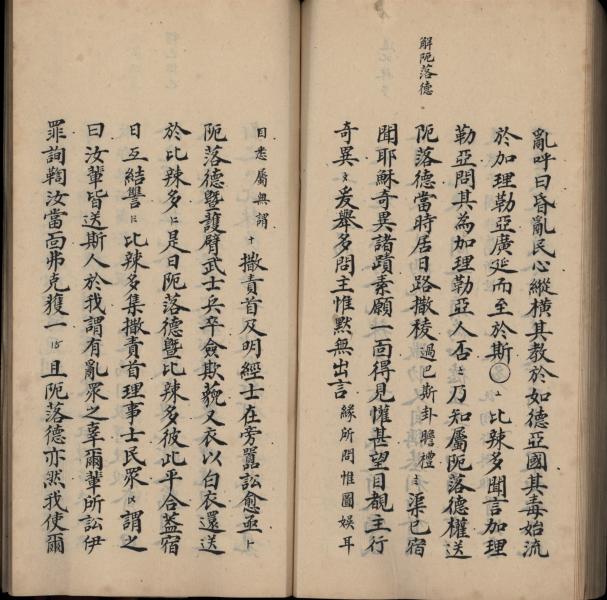 解阨落德
亂呼曰昏亂民心縱横其教於如德亞國其毒始流
於加理勒亞廣延而至於斯〇比辣多聞言加理
勒亞問其為加理勒亞人否乃知屬阨落德權送
阨落德當時居日路撒稜過巴斯卦瞻禮渠已宿
聞耶穌奇異諸蹟素願一面得見懽甚望目覩主行
奇異爰舉多問主惟默無出言緣所問惟圖娛耳
目悉屬無謂撒責首及明經士在旁囂訟愈亟
阨落德暨護臂武士兵卒僉欺藐又衣以白衣還送
於比辣多是日阨落德暨比辣多彼此平合蓋宿
日互結讐比辣多集撒責首理事士民眾謂之
曰汝輩皆送斯人於我謂有亂眾之辜爾輩所訟伊
罪詢鞫汝當面弗克獲一且阨落德亦然我使爾